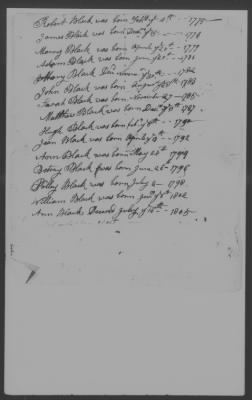 Robert Black was born ye 11th 1775
James Black was born Decr ye 25 1776
Marey Black was born Aprele ye 26th 1779
Adam Black was born June ye 21 1781
Marey Black Dec ye 20th 1782
John Black was born August ye 25 1783
Sarah Black was born November 27 1785
Matthew Black was born Decr ye 8th 1787
Hugh Black was born feb ye 1790
Jean Black was born Aprele ye 1792
Ann Black was born May 20th
Betsey Black was born June 26 1796
Polley Black was born July 2 1798
William Black was born Jany ye 8th 1802
Ann Black Deceasd July ye 16th 1805